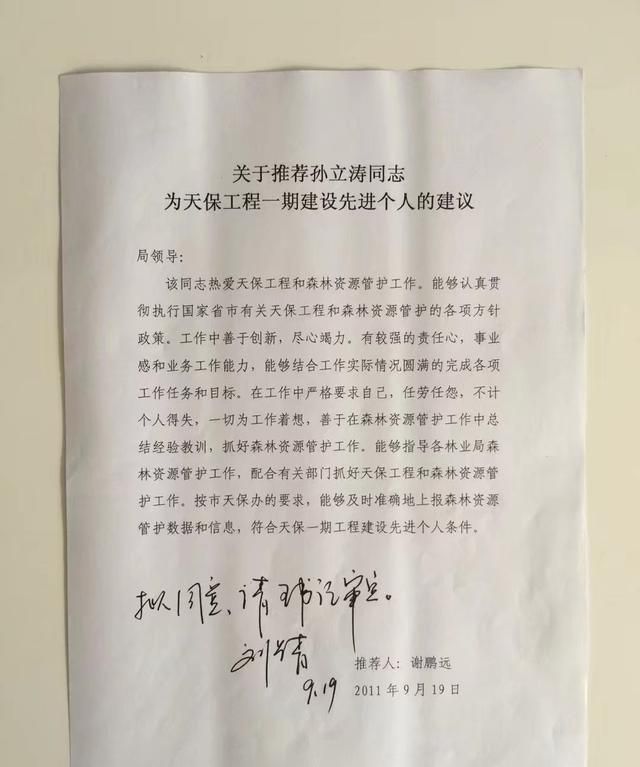 关于推荐孙立涛同志
为天保工程一期建设先进个人的建议
局领导：
该同志热爱天保工程和森林资源管护工作。能够认真贯
彻执行国家省市有关天保工程和森林资源管护的各项方针
政策。工作中善于创新，尽心竭力。有较强的责任心，事业
感和业务工作能力，能够结合工作实际情况圆满的完成各项
工作任务和目标。在工作中严格要求自己，任劳任怨，不计
个人得失，一切为工作着想，善于在森林资源管护工作中总
结经验教训，抓好森林资源管护工作。能够指导各林业局森
林资源管护工作，配合有关部门抓好天保工程和森林资源管
护工作。按市天保办的要求，能够及时准确地上报森林资源
管护数据和信息，符合天保一期工程建设先进个人条件。
拟同意、请审定。
刘
9.19
推荐人：谢鹏远
2011年9月19日